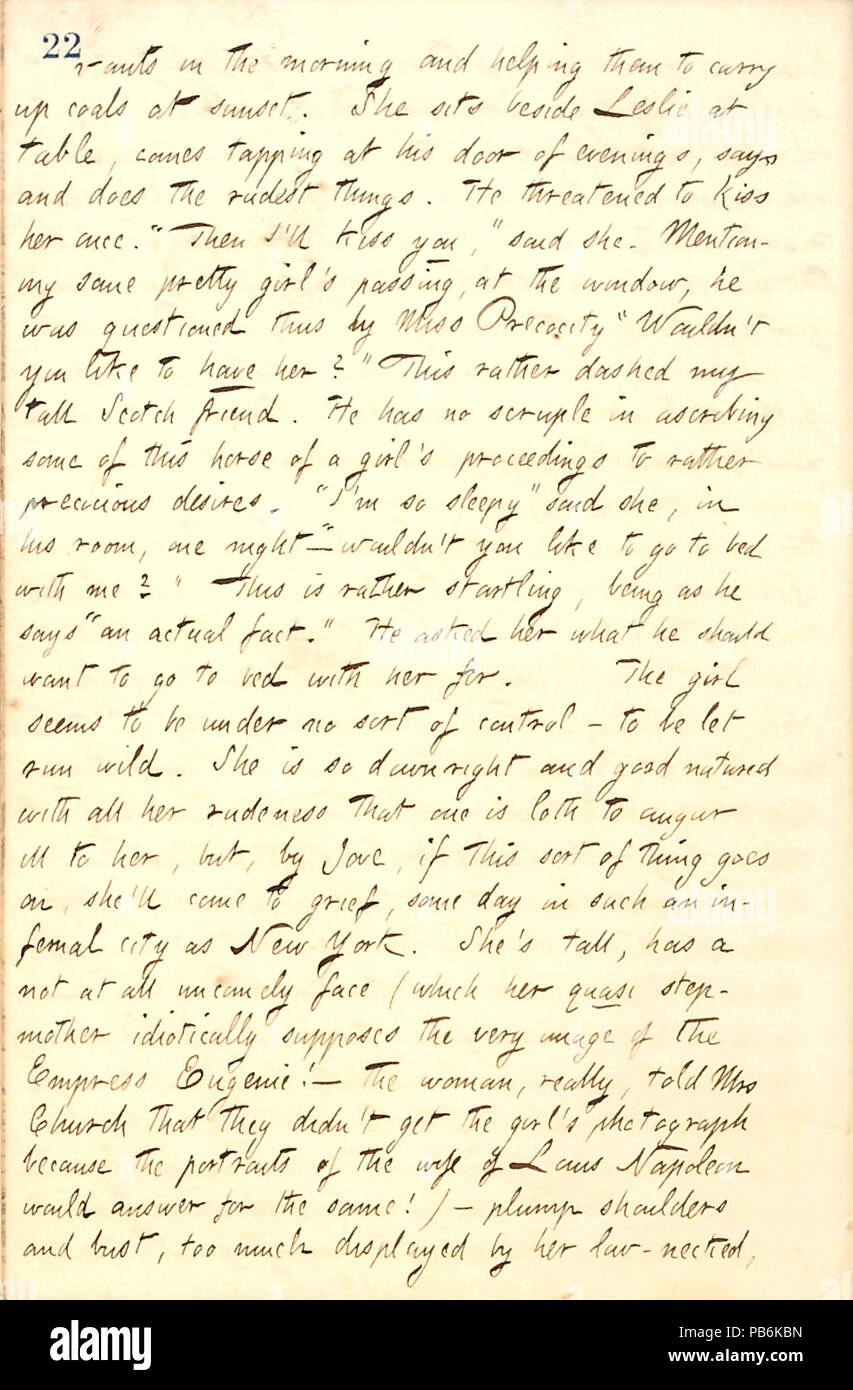 22
-vants in the morning and helping them to carry
up coals at sunset. She sits beside Leslie at
table, comes tapping at his door of evenings, says
and does the rudest things. He threatened to kiss
her once. "Then I'll kiss you," said she. Mention-
ing some pretty girl's passing, at the window, he
was questioned thus by Miss Precocity "Wouldn't
you like to have her?" This rather dashed my
tall Scotch friend. He has no scruple in ascribing
some of this horse of a girl's proceedings to rather
precocious desires. "I'm so sleepy" said she, in
his room, one night — "wouldn't you like to go to bed
with me?" This is rather startling, being as he
says "an actual fact." He asked her what he should
want to go to bed with her for. The girl
seems to be under no sort of control - to be let
run wild. She is so downright and good natured
with all her rudeness that one is loth to augur
ill to her, but, by Jove, if this sort of thing goes
on, she'll come to grief, some day in such an in-
fernal city as New York. She's tall, has a
not at all uncomely face (which her quasi step-
mother idiotically supposes the very image of the
Empress Eugenie! — the woman, really, told Mrs
Church that they didn't get the girl's photograph
because the portraits of the wife of Louis Napoleon
would answer for the same!) — plump shoulders
and bust, too much displayed by her low-necked,
alamy
Image ID: PB6KBN
www.alamy.com